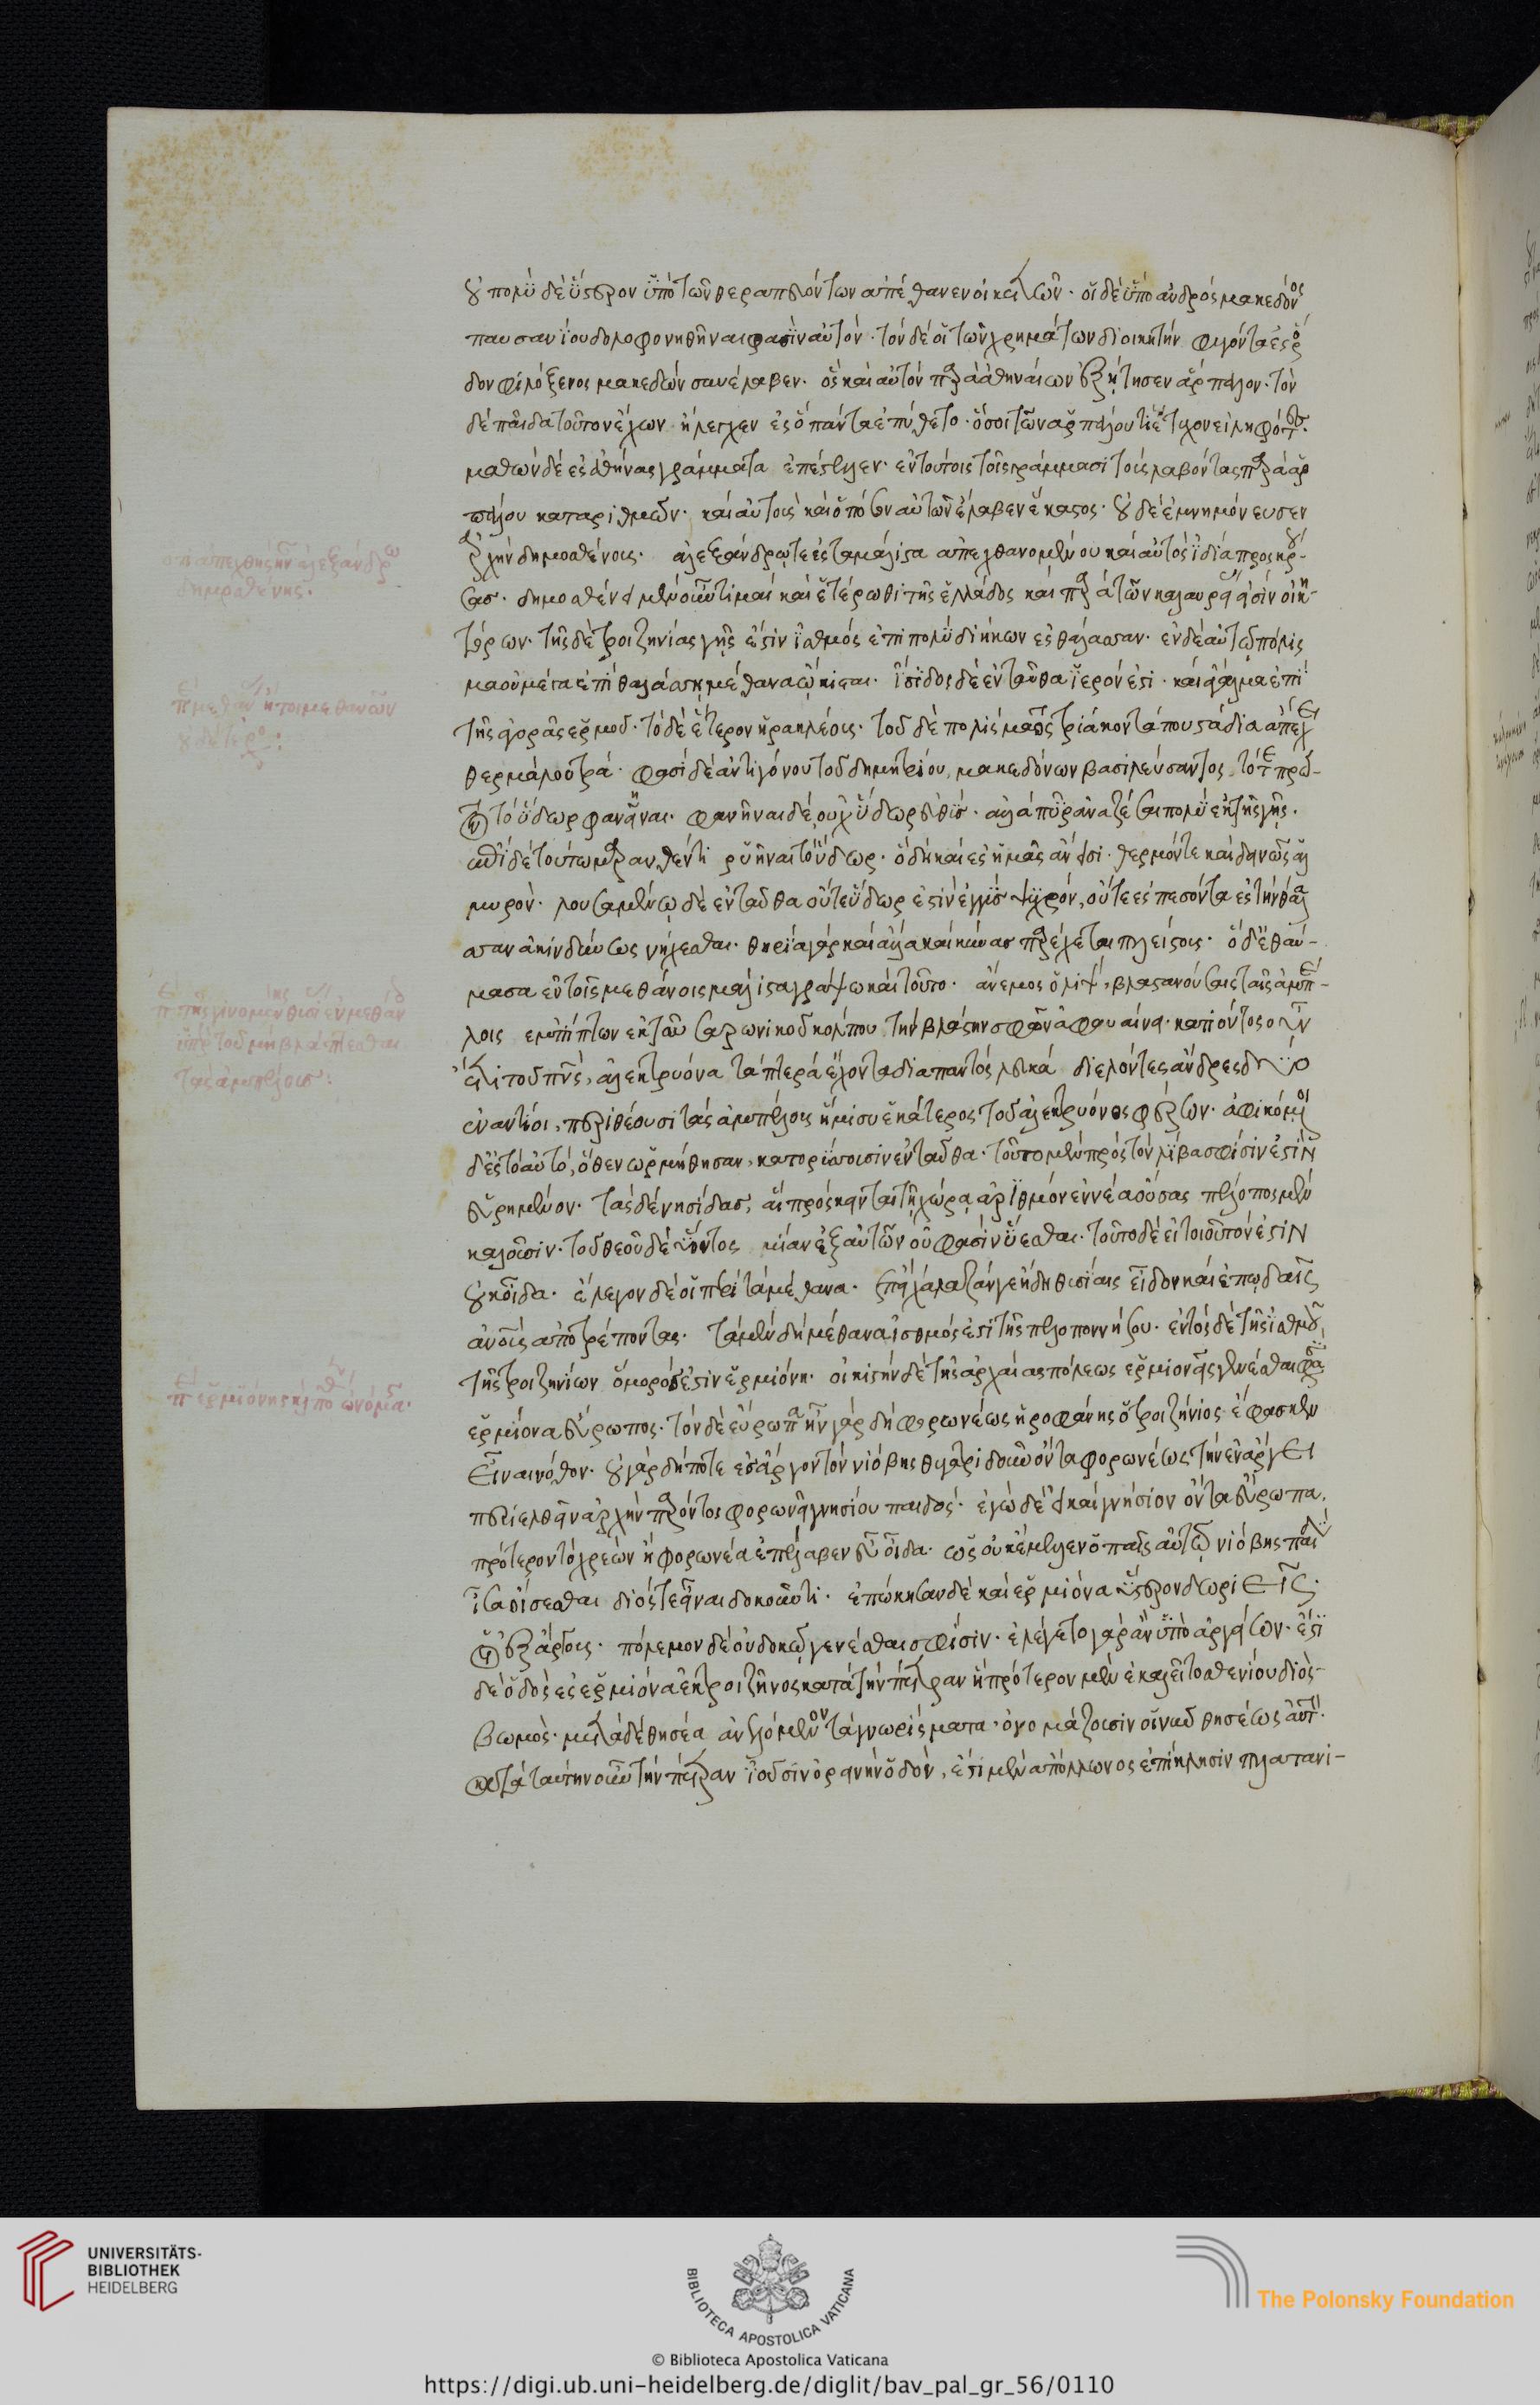 οὐ πολὺ δὲ ὕστερον ὑπὸ τῶν θεραπευόντων ἀπέθανεν οἰκετῶν· οἱ δὲ ὑπὸ ἀνδρὸς μακεδόνος
παυσανίου δολοφονηθῆναι φασὶν αὐτόν· τὸν δέ οἱ τῶν χρημάτων διοικητὴν φυγόντα ἐς ῥό
δον φιλόξενος μακεδὼν συνέλαβεν· ὃς καὶ αὐτὸν παρὰ ἀθηναίων ἐξῄτησεν ἅρπαλον· τὸν
δὲ παῖδα τοῦτον ἔχων ἤλεγχεν ἐς ὃ πάντα ἐπύθετο· ὅσοι τῶν ἁρπάλου τι ἔτυχον εἰληφότες·
μαθὼν δὲ ἐς ἀθήνας γράμματα ἐπέστειλεν· ἐν τούτοις τοῖς γράμμασι τοὺς λαβόντας παρὰ ἁρ
πάλου καταριθμῶν· καὶ αὐτοὺς καὶ ὁπόσον αὐτῶν ἔλαβεν ἕκαστος· οὐδὲ ἐμνημόνευσεν
ἀρχὴν δημοσθένους· ἀλεξάνδρῳ τε ἐς τὰ μάλιστα ἀπεχθανομένου καὶ αὐτὸς ἰδία προσκρού-
σας· δημοσθένει μὲν οὖν τιμαὶ καὶ ἑτέρωθι τῆς ἑλλάδος καὶ παρὰ τῶν καλαυρείας εἰσὶν οἰκη-
τόρων· τῆς δὲ τροιζηνίας γῆς ἐστὶν ἰσθμὸς ἐπὶ πολὺ διήκων ἐς θάλασσαν· ἐν δὲ αὐτῷ πόλις
μα οὐ μέγα ἐπὶ θαλάσσῃ μέθανα ᾤκισται· ἴσιδος δὲ ἐνταῦθα ἱερόν ἐστι· καὶ ἄγαλμα ἐπὶ
τῆς ἀγορᾶς ἑρμοῦ· τὸ δὲ ἕτερον ἡρακλέους· τοῦ δὲ πολίσματος τριάκοντά που στάδια ἀπέχει
θερμὰ λουτρά· φασὶ δὲ ἀντιγόνου τοῦ δημητρίου, μακεδόνων βασιλεύσαντος, τότε πρῶ-
τον τὸ ὕδωρ φανῆναι· φανῆναι δὲ οὐχ ὕδωρ εὐθὺς· ἀλλὰ πῦρ ἀναζέσαι πολὺ ἐκ τῆς γῆς·
ἐπὶ δὲ τούτῳ μαρανθέντι ῥυῆναι τὸ ὕδωρ· ὃ δὴ καὶ ἐς ἡμᾶς ἄνεισι· θερμόν τε καὶ δεινῶς ἁλ
μυρόν· λουσαμένῳ δὲ ἐνταῦθα οὔτε ὕδωρ ἐστὶν ἐγγὺς ψυχρόν, οὔτε ἐσπεσόντα ἐς τὴν θάλα
σσαν ἀκινδύνως νήχεσθαι· θηρία γὰρ καὶ ἄλλα καὶ κύνας παρέχεται πλείστους· ὃ δὲ ἐθαύ-
μασα ἐν τοῖς μεθάνοις μάλιστα γράψω καὶ τοῦτο· ἄνεμος ὁ λὶψ, βλαστανούσαις ταῖς ἀμπέ-
λοις ἐμπίπτων ἐκ τοῦ σαρωνικοῦ κόλπου τὴν βλάστην σφῶν ἀφαυαίνει· κατιόντος οὖν
ἔτι τοῦ πνεύματος, ἀλεκτρυόνα τὰ πτερὰ ἔχοντα διαπαντὸς λευκὰ διελόντες ἄνδρες δύο
ἐναντίοι, περιθέουσι τὰς ἀμπέλους ἥμισυ ἑκάτερος τοῦ ἀλεκτρυόνος φέρων· ἀφικόμενοι
δ' ἐς τὸ αὐτό, ὅθεν ὡρμήθησαν, κατορύσσουσιν ἐνταῦθα· τοῦτο μὲν πρὸς τὸν λίβα σφίσιν ἐστὶν
εὑρημένον· τὰς δὲ νησίδας, αἳ πρόκεινται τῇ χώρᾳ ἀριθμὸν ἐννέα οὔσας πέλοπος μὲν
καλοῦσιν· τοῦ θεοῦ δὲ ὕοντος μίαν ἐξ αὐτῶν οὔ φασιν ὕεσθαι· τοῦτο δὲ εἰ τοιοῦτόν ἐστιν
οὐκ οἶδα· ἔλεγον δὲ οἱ περὶ τὰ μέθανα· ἐπεὶ χάλαζάν γε ἤδη θυσίαις εἶδον καὶ ἐπῳδαῖς
ἀνθρώπους ἀποτρέποντας· τὰ μὲν δὴ μέθανα ἰσθμός ἐστι τῆς πελοποννήσου· ἐντὸς δὲ τῆς ἰσθμοῦ,
τῆς τροιζηνίων ὅμορός ἐστιν ἑρμιόνη· οἰκιστὴν δὲ τῆς ἀρχαίας πόλεως ἑρμιονεῖς γενέσθαι φασὶν
ἑρμίονα εὔρωπος· τὸν δὲ εὔρωπα ἦν γὰρ δὴ φορωνέως ἡροφάνης ὁ τροιζήνιος ἔφασκεν
εἶναι νόθον· οὐ γὰρ δήποτε ἐς ἄργον τὸν νιόβης θυγατριδοῦν ὄντα φορωνέως τὴν ἐν ἄργει
περιελθεῖν ἀρχὴν παρόντος φορωνεῖ γνησίου παιδός· ἐγὼ δὲ εἰ καὶ γνήσιον ὄντα εὔρωπα,
πρότερον τὸ χρεὼν ἢ φορωνέα ἐπέλαβεν εὖ οἶδα· ὡς οὐκ ἔμελλεν ὁ παῖς αὐτῷ νιόβης παιδὶ
ἴσα οἴσεσθαι διός τε εἶναι δοκοῦντι· ἐπῴκησαν δὲ καὶ ἑρμιόνα ὕστερον δωριεῖς·
οἱ ἐξ ἄργους· πόλεμον δὲ οὐ δοκῶ γενέσθαι σφίσιν· ἐλέγετο γὰρ ἂν ὑπὸ ἀργείων· ἔστι
δὲ ὁδὸς ἐς ἑρμιόνα ἐκ τροιζῆνος κατὰ τὴν πέτραν ἣ πρότερον μὲν ἐκαλεῖτο σθενίου διὸς
βωμός· μετὰ δὲ θησέα ἀνελόμενον τὰ γνωρίσματα· ὀνομάζουσιν οἱ νῦν θησέως αὐτήν·
κατὰ ταύτην οὖν τὴν πέτραν ἰοῦσιν ὀρεινὴν ὁδόν, ἔστι μὲν ἀπόλλωνος ἐπίκλησιν πλατανι-
ὅτι ἀπεχθὴς ἦν ἀλεξάνδρῳ
δημοσθένης·
περὶ μεθάνων ἤτοι μεθανῶν
οὐδετέρως:
περὶ τῆς γινομένης θυσίας ἐν μεθάνοις
ὑπὲρ τοῦ μὴ βλάπτεσθαι
τὰς ἀμπέλους:
UNIVERSITÄTS-
BIBLIOTHEK
HEIDELBERG
BIBLIOTECA APOSTOLICA VATICANA
The Polonsky Foundation
© Biblioteca Apostolica Vaticana
https://digi.ub.uni-heidelberg.de/diglit/bav_pal_gr_56/0110